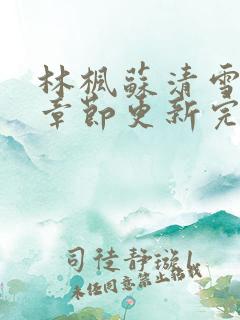 林楓蘇清雪
章節更新完
司徒靜璇1
未经同意禁止转载